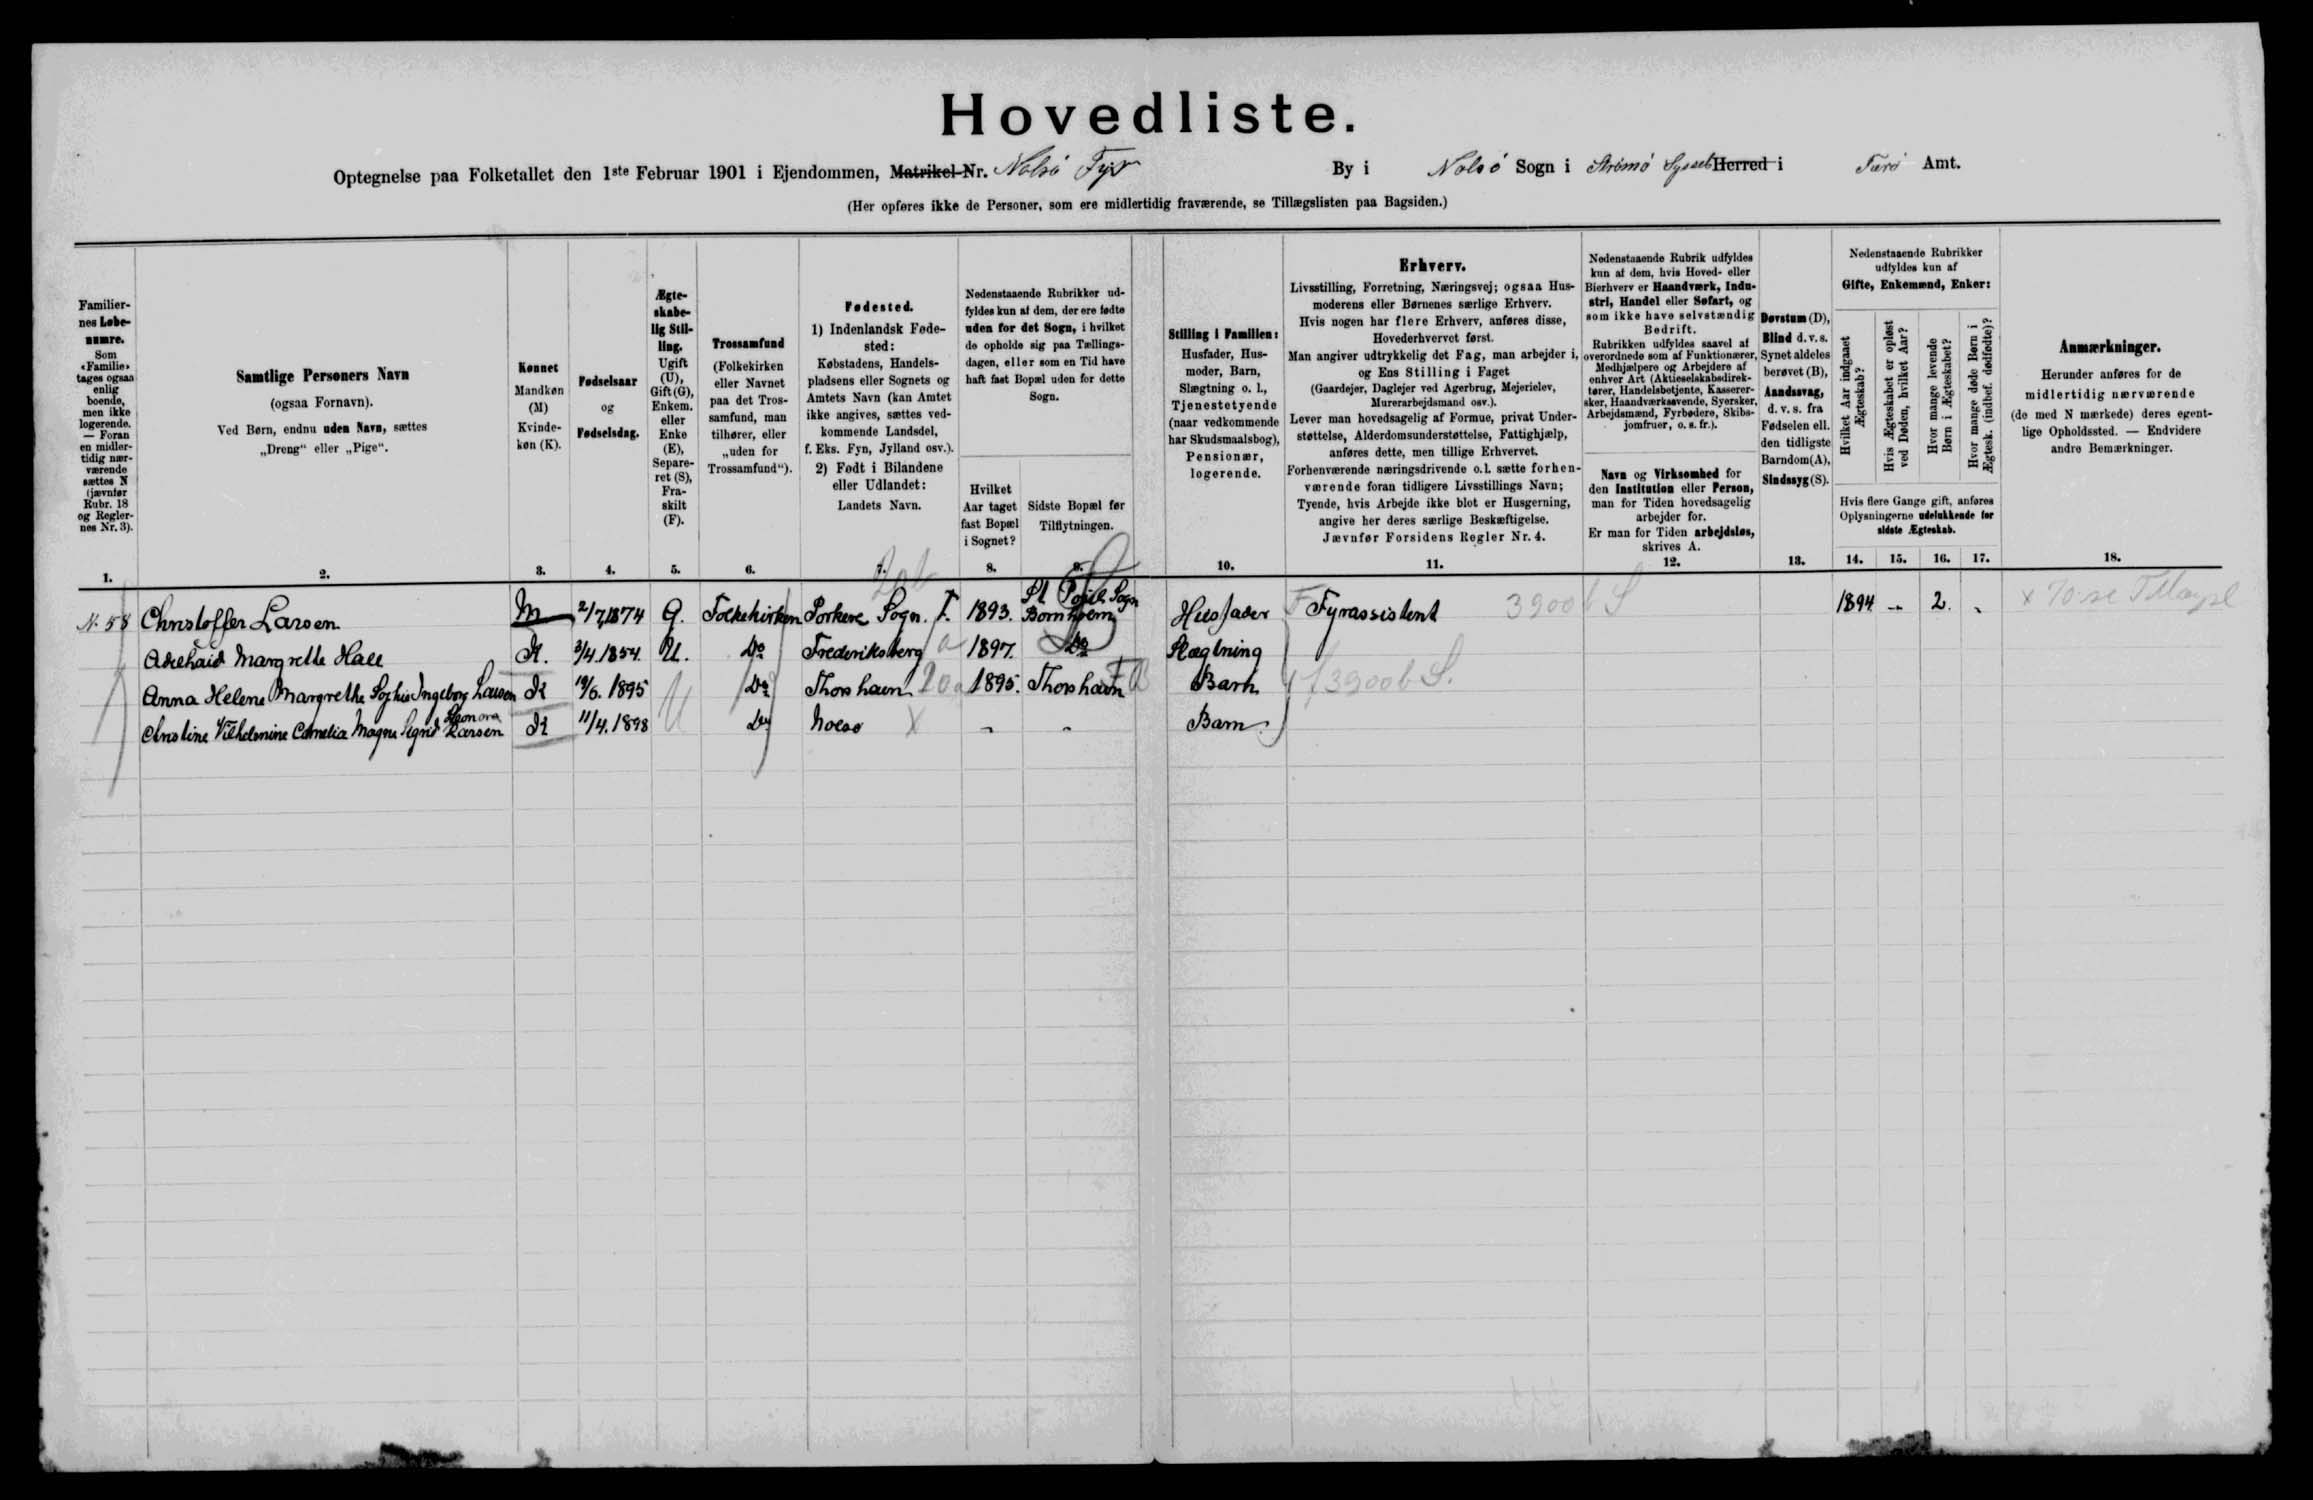 Hovedliste.
Optegnelse paa Folketallet den 1ste Februar 1901 i Ejendommen, Matrikel-Nr. Nolsö Fyr By i Nolsö Sogn i Strömö Syssel Herred i Færö Amt.
(Her opføres ikke de Personer, som ere midlertidig fraværende, se Tillægslisten paa Bagsiden.)
Familier-
nes Løbe-
numre.
Som
«Familie»
tages ogsaa
enlig
boende,
men ikke
logerende.
— Foran
en midler-
tidig nær-
værende
sættes N
(jævnfør
Rubr. 18
og Regler-
nes Nr. 3).
1.
Samtlige Personers Navn
(ogsaa Fornavn).
Ved Børn, endnu uden Navn, sættes
„Dreng“ eller „Pige“.
2.
Kønnet
Mandkøn
(M)
Kvinde-
køn (K).
3.
Fødselsaar
og
Fødselsdag.
4.
Ægte-
skabe-
lig Stil-
ling.
Ugift
(U),
Gift (G),
Enkem.
eller
Enke
(E),
Separe-
ret (S),
Fra-
skilt
(F).
5.
Trossamfund
(Folkekirken
eller Navnet
paa det Tros-
samfund, man
tilhører, eller
„uden for
Trossamfund“).
6.
Fødested.
1) Indenlandsk Føde-
sted:
Købstadens, Handels-
pladsens eller Sognets og
Amtets Navn (kan Amtet
ikke angives, sættes ved-
kommende Landsdel,
f. Eks. Fyn, Jylland osv.).
2) Født i Bilandene
eller Udlandet:
Landets Navn.
7.
Nedenstaaende Rubrikker ud-
fyldes kun af dem, der ere fødte
uden for det Sogn, i hvilket
de opholde sig paa Tællings-
dagen, eller som en Tid have
haft fast Bopæl uden for dette
Sogn.
Hvilket
Aar taget
fast Bopæl
i Sognet?
8.
Sidste Bopæl før
Tilflytningen.
9.
Stilling i Familien:
Husfader, Hus-
moder, Barn,
Slægtning o. l.,
Tjenestetyende
(naar vedkommende
har Skudsmaalsbog),
Pensionær,
logerende.
10.
Erhverv.
Livsstilling, Forretning, Næringsvej; ogsaa Hus-
moderens eller Børnenes særlige Erhverv.
Hvis nogen har flere Erhverv, anføres disse,
Hovederhvervet først.
Man angiver udtrykkelig det Fag, man arbejder i,
og Ens Stilling i Faget
(Gaardejer, Daglejer ved Agerbrug, Mejerielev,
Murerarbejdsmand osv.).
Lever man hovedsagelig af Formue, privat Under-
støttelse, Alderdomsunderstøttelse, Fattighjælp,
anføres dette, men tillige Erhvervet.
Forhenværende næringsdrivende o.l. sætte forhen-
værende foran tidligere Livsstillings Navn;
Tyende, hvis Arbejde ikke blot er Husgerning,
angive her deres særlige Beskæftigelse.
Jævnfør Forsidens Regler Nr. 4.
11.
Nedenstaaende Rubrik udfyldes
kun af dem, hvis Hoved- eller
Bierhverv er Haandværk, Indu-
stri, Handel eller Søfart, og
som ikke have selvstændig
Bedrift.
Rubrikken udfyldes saavel af
overordnede som af Funktionærer,
Medhjælpere og Arbejdere af
enhver Art (Aktieselskabsdirek-
tører, Handelsbetjente, Kasserer-
sker, Haandværkssvende, Syersker,
Arbejdsmænd, Fyrbødere, Skibs-
jomfruer, o. s. fr.).
Navn og Virksomhed for
den Institution eller Person,
man for Tiden hovedsagelig
arbejder for.
Er man for Tiden arbejdsløs,
skrives A.
12.
Døvstum (D),
Blind d.v.s.
Synet aldeles
berøvet (B),
Aandssvag,
d. v. s. fra
Fødselen ell.
den tidligste
Barndom(A),
Sindssyg(S).
13.
Nedenstaaende Rubrikker
udfyldes kun af
Gifte, Enkemænd, Enker:
Hvilket Aar indgaaet
Ægteskab?
Hvis Ægteskabet er opløst
ved Døden, hvilket Aar?
Hvor mange levende
Børn i Ægteskabet?
Hvor mange døde Børn i
Ægtesk. (indbef. dødfødte)?
Hvis flere Gange gift, anføres
Oplysningerne udelukkende for
sidste Ægteskab.
14. 15. 16. 17.
Anmærkninger.
Herunder anføres for de
midlertidig nærværende
(de med N mærkede) deres egent-
lige Opholdssted. — Endvidere
andre Bemærkninger.
18.
N. 58 Christoffer Larsen M 2/7 1874 G. Folkekirken Porkere Sogn. F. 1893. St Pouls Sogn Bornholm Husfader Fyrassistent 3900 b S 1894 - 2. -
Adelhaid Margrethe Hall K. 3/4 1854. U. Do Frederiksberg 1897. Do Slægtning
Anna Helene Margrethe Sophie Ingeborg Larsen K 19/6. 1895 U Do Thorshavn 1895. Thorshavn Barn 3900 b S.
Christine Vilhelmine Cornelia Magne Sigrid Leonora Larsen K 11/4. 1898 U Do Nolsø X - - Barn